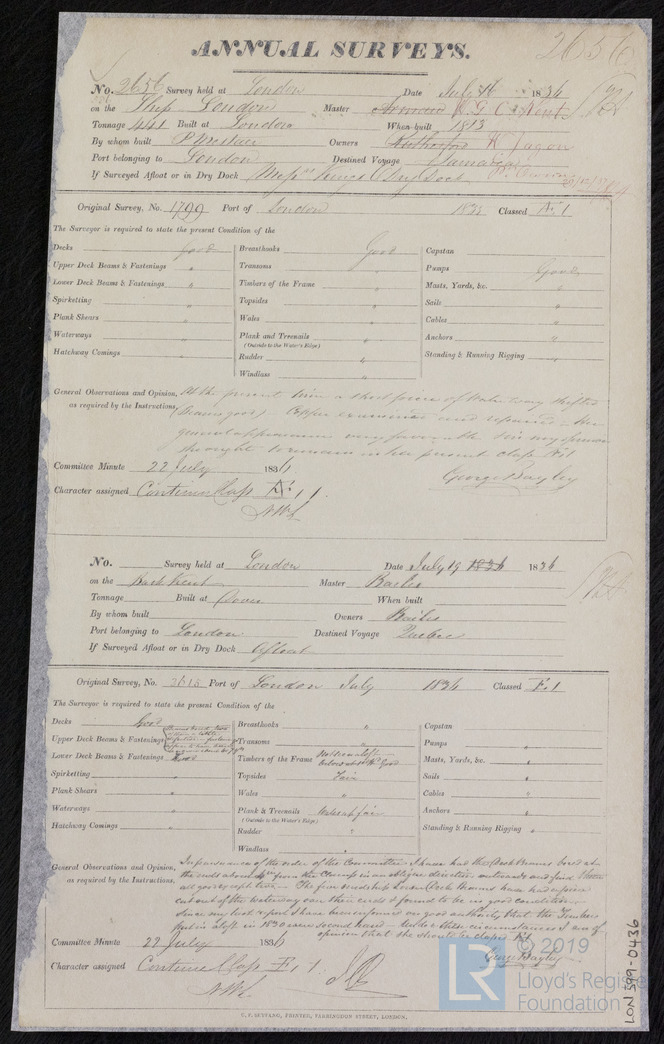 ANNUAL SURVEYS.
2656
No. 2656 Survey held at London Date July 16 1836
on the Ship London Master
Tonnage 441 Built at London When built 1813
By whom built Owners
Port belonging to London Destined Voyage Jamaica
If Surveyed Afloat or in Dry Dock Dry Dock
Original Survey, No. 1799 Port of London 1835 Classed Æ 1
The Surveyor is required to state the present Condition of the
Decks good Breasthooks Good Capstan
Upper Deck Beams & Fastenings " Transoms " Pumps Good
Lower Deck Beams & Fastenings " Timbers of the Frame " Masts, Yards, &c. "
Spirketting " Topsides " Sails "
Plank Shears " Wales " Cables "
Waterways " Plank and Treenails " Anchors "
(Outside to the Water's Edge)
Hatchway Comings " Rudder " Standing & Running Rigging "
Windlass "
General Observations and Opinion, At the present time a short piece of Waterway shifted
as required by the Instructions, (Beams good) Copper examined and repaired - the
general appearance very favorable & in my opinion
she ought to remain in her present class Æ 1
Committee Minute 22 July 1836
George Bayley
Character assigned Continue Class Æ 1
No. Survey held at London Date July 19 1836 1836
on the Bark Kent Master Bailes
Tonnage Built at Dover When built
By whom built Owners Bailes
Port belonging to London Destined Voyage Quebec
If Surveyed Afloat or in Dry Dock Afloat
Original Survey, No. 3615 Port of London July 1836 Classed E. 1
The Surveyor is required to state the present Condition of the
Decks Good Breasthooks " Capstan
Upper Deck Beams & Fastenings Transoms " Pumps "
Lower Deck Beams & Fastenings Good Timbers of the Frame Masts, Yards, &c. "
Spirketting " Topsides Fair Sails "
Plank Shears " Wales " Cables "
Waterways " Plank & Treenails fair Anchors "
(Outside to the Water's Edge)
Hatchway Comings " Rudder " Standing & Running Rigging "
Windlass "
General Observations and Opinion, In pursuance of the order of the Committee I have had the Deck Beams bored at
as required by the Instructions, the ends from the Clamp in an oblique direction outwards and find them
all good except two - The Deck Beams have had a piece
cut out of the waterway over their ends & found to be in good condition
Since my last report I have been informed on good authority that the Timbers
put in aloft in 1830 were second hand - Under these circumstances I am of
opinion that she should be classed E 1
Committee Minute 22 July 1836
Geo Bayley
Character assigned Continue Class E 1
C. F. SEYFANG, PRINTER, FARRINGDON STREET, LONDON.
LON 599-0436
© 2019
LR
Lloyd's Register
Foundation